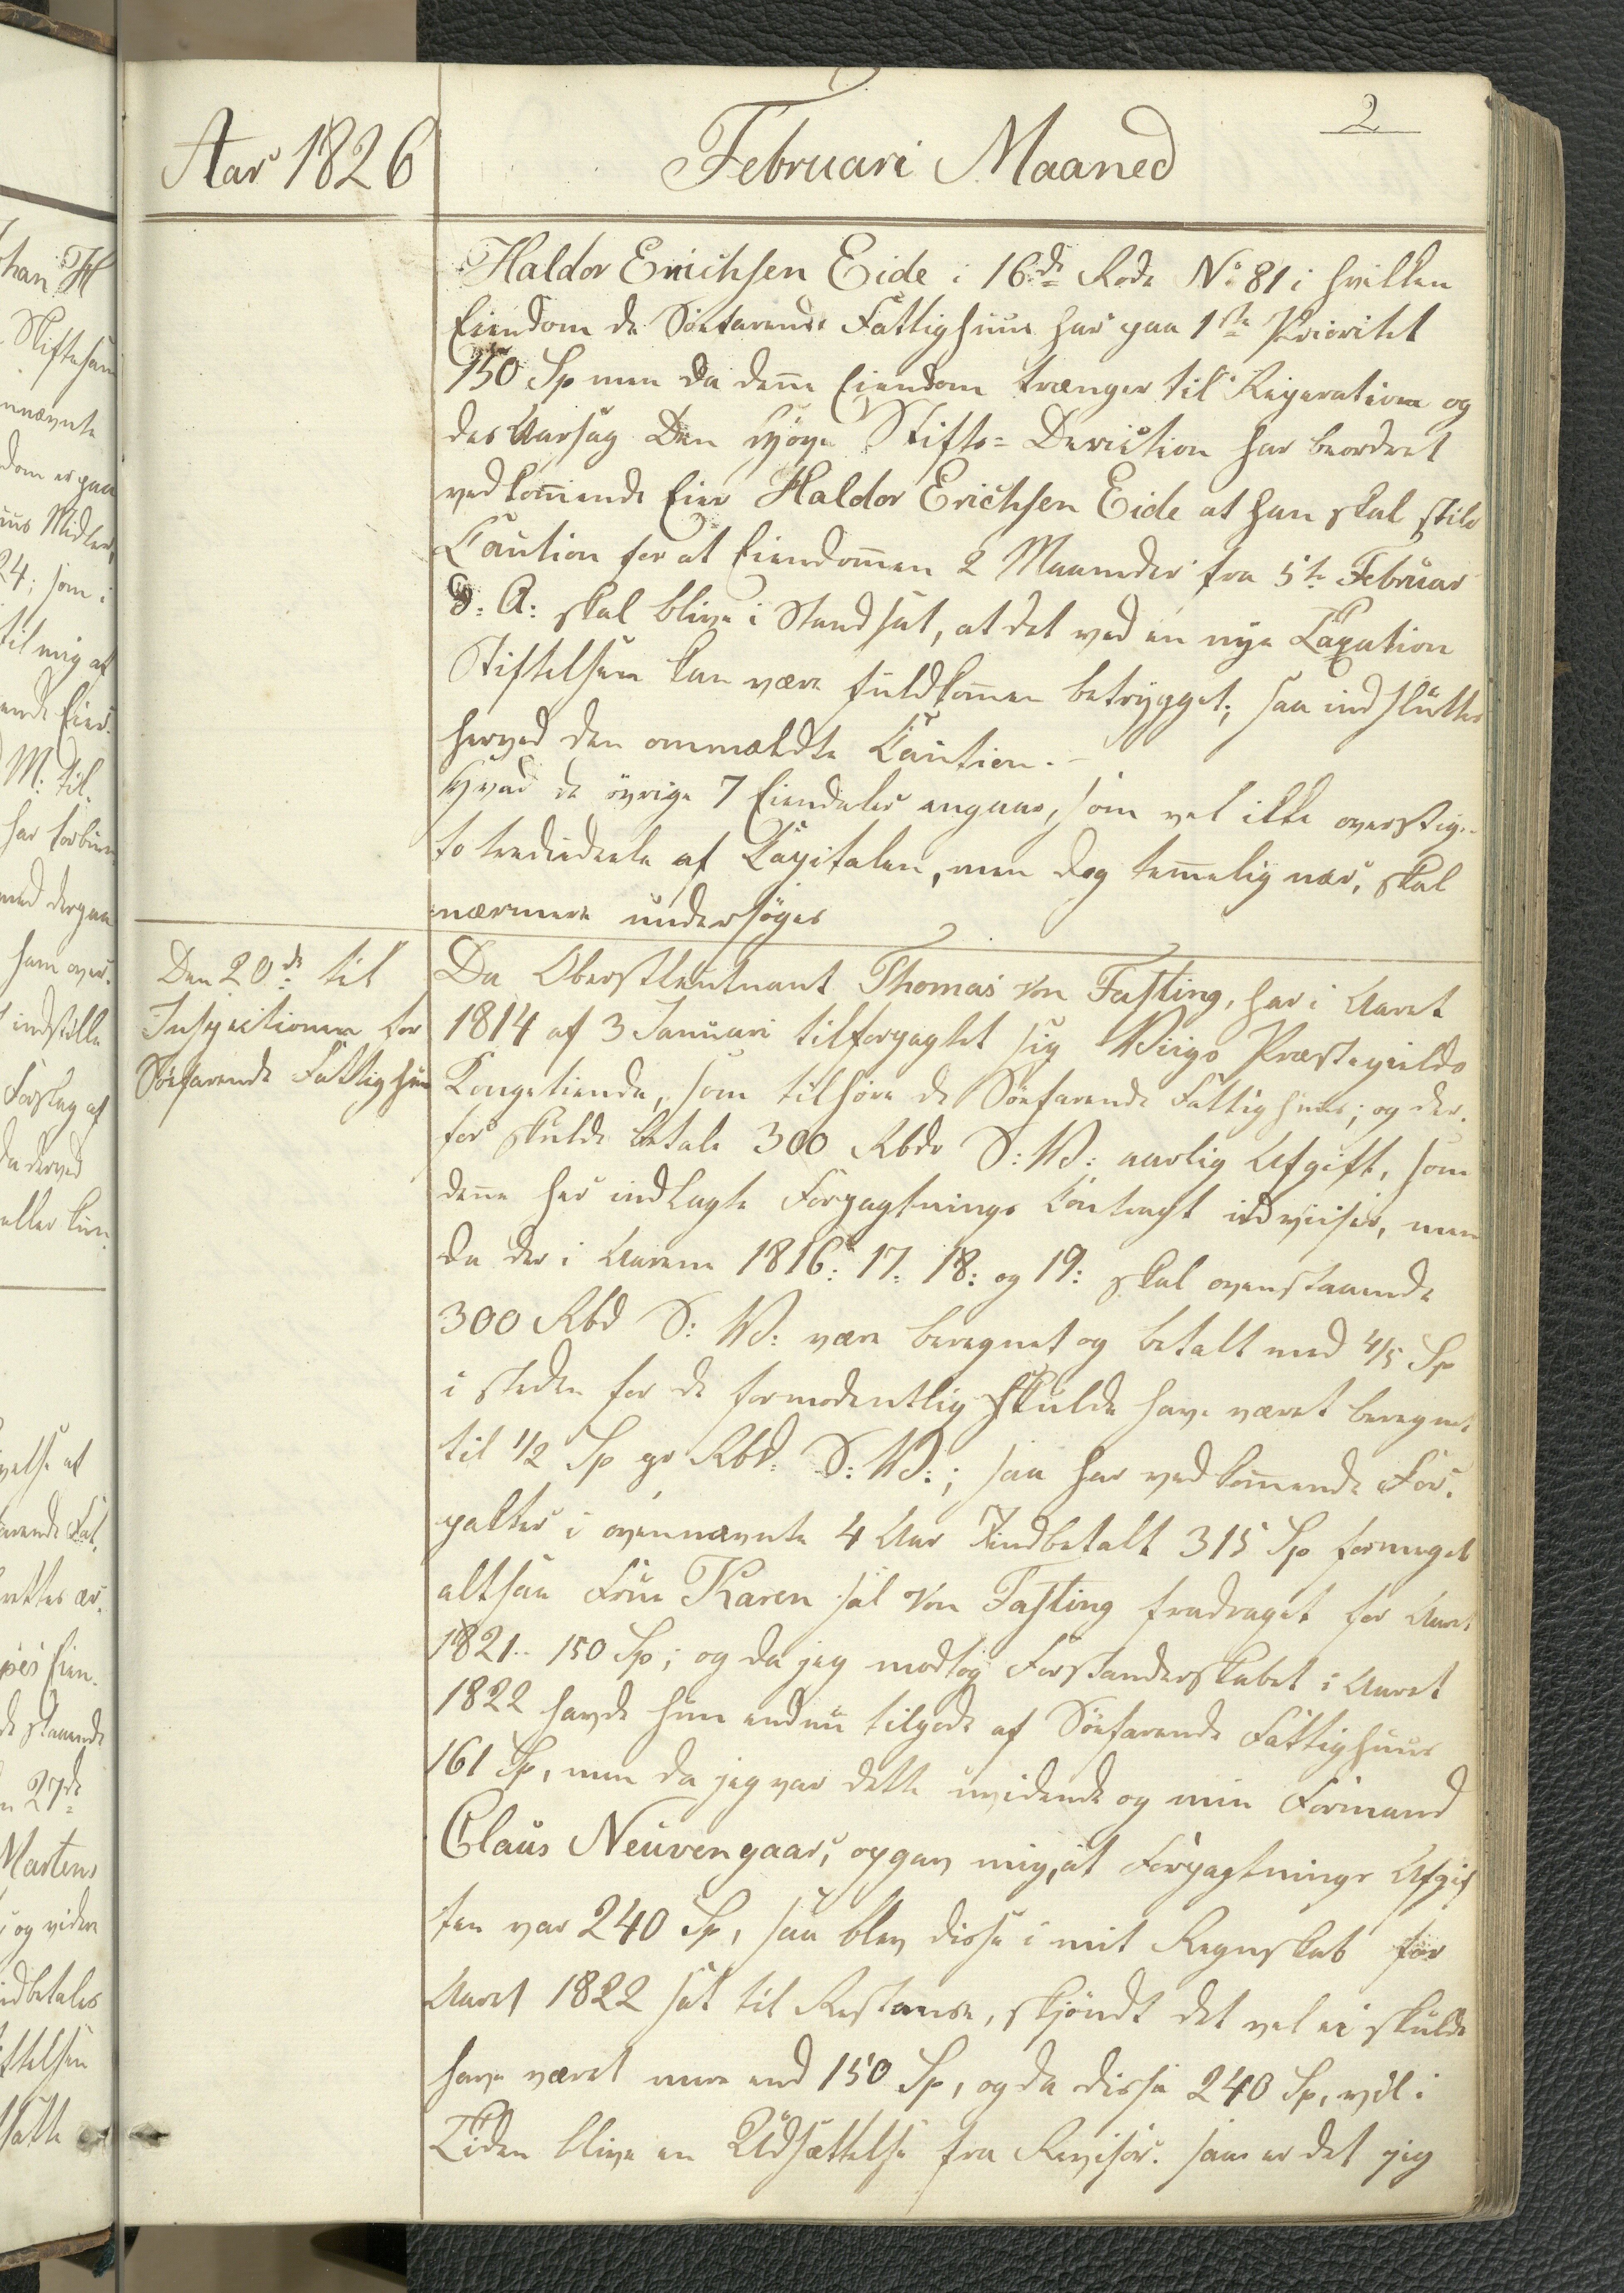 2
Aar 1826
Februari Maaned
Haldor Erichsen Eide i 16de Rode No 81 i hvilken
Eiendom de Söefarendes Fattighuus har paa 1ste Prioritet
150 Sp men da denne Eiendom trænger til Reperation og
des Aarsag Den Høye Stifts=Direction har beordret
vedkommende Eier Haldor Erichsen Eide at han skal stile
Caution for at Eiendommen 2 Maaneder fra 5te Februar
d: A: skal blive i Stand sat, at det ved en nye Taxation
Stiftelsen kan være fuldkommen betrygget; saa indsluttes
herved den ommældte Caution.-
Hvad de övrige 7 Eiendeler angaar, som vel ikke overstige
to trediedeele af Capitalen, men dog temmelig nær, skal
nærmere undersöges
Den 20de til
Inspectionen for
Söefarende Fattighuus
Da Oberstleutnant Thomas von Fasting, har i Aaret
1814 af 3 Januari tilforpagtet sig Præstegields
Kongetiende, som tilhöre de Söefarende Fattighuus; og der.
for skulde betale 300 Rbdr S:V: aarlig Afgift, som
denne her indlagte Forpagtnings Contract udviiser, men
da der i Aarene 1816: 17: 18: og 19: skal ovenstaaende
300 Rbd S: V: være beregnet og betalt med 4/5 Sp
i steden for de formodentlig skulde have været beregnet
til 1/2 Sp pr Rbd: S: V:; saa har vedkommende For.
pakter i ovennævnte 4 Aar indbetalt 315 Sp formeget
altsaa Frue Karen sal von Fasting fradraget for Aaret
1821.. 150 Sp; og da jeg modtog Forstanderskabet i Aaret
1822 havde hun endnu tilgode af Söefarende Fattighuus
161 Sp, men da jeg var dette uvidende og min Formand
Claus Neuvengaar, opgav mig, at Forpagtnings Afgif
ten var 240 Sp, saa blev disse i mit Regnskab for
Aaret 1822 sat til Restance, skjöndt det vel ei skulde
have været mere end 150 Sp, og da disse 240 Sp, vil i
Tiden blive en Udsættelse fra Revisor. saa er det jeg